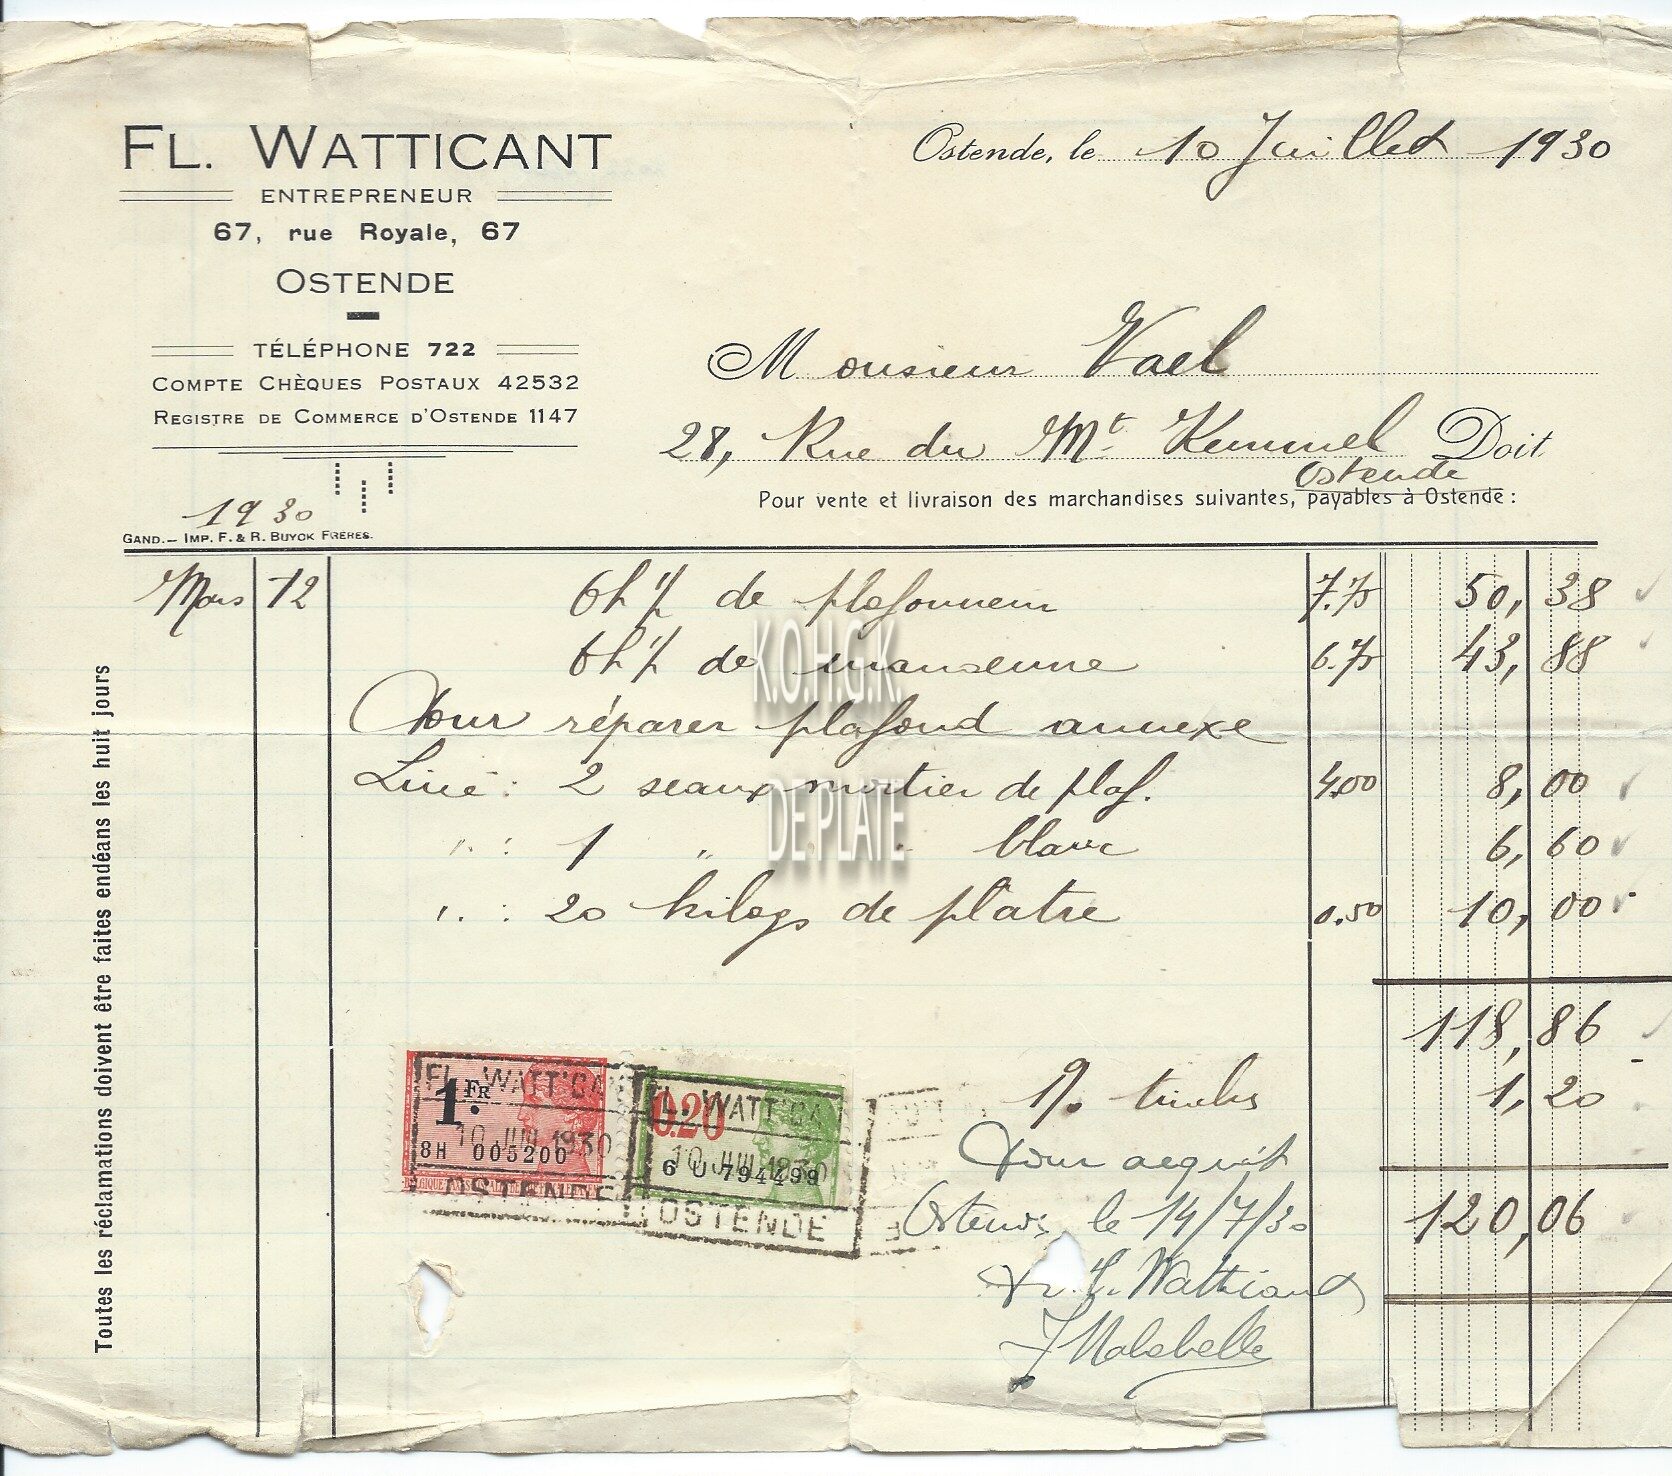 FL. WATTICANT
ENTREPRENEUR
67, rue Royale, 67
OSTENDE
TÉLÉPHONE 722
COMPTE CHÈQUES POSTAUX 42532
REGISTRE DE COMMERCE D'OSTENDE 1147
1930
GAND.— IMP. F. & R. BUYCK FRÈRES.
Ostende, le 10 Juillet 1930
Monsieur Vael
28, Rue du Mt. Kemmel Doit
Ostende
Pour vente et livraison des marchandises suivantes, payables à Ostende :
Mars 12 6h ½ de plafonneur 7.75 50,38
6h ½ de manœuvre 6.75 43,88
Pour réparer plafond annexe
Livré : 2 seaux mortier de plaf. 4.00 8,00
" : 1 " " blanc 6,60
" : 20 kilogs de plâtre 0.50 10,00
118,86
timbres 1,20
Pour acquit
Ostende, le 14/7/30 120,06
Watticant
Toutes les réclamations doivent être faites endéans les huit jours
1 FR
8H 005200
FL. WATTICANT
10 JUIL 1930
OSTENDE
0.20
6 U 794499
FL. WATTICA
10 JUIL 1930
OSTENDE
K.O.H.G.K.
DE PLATE